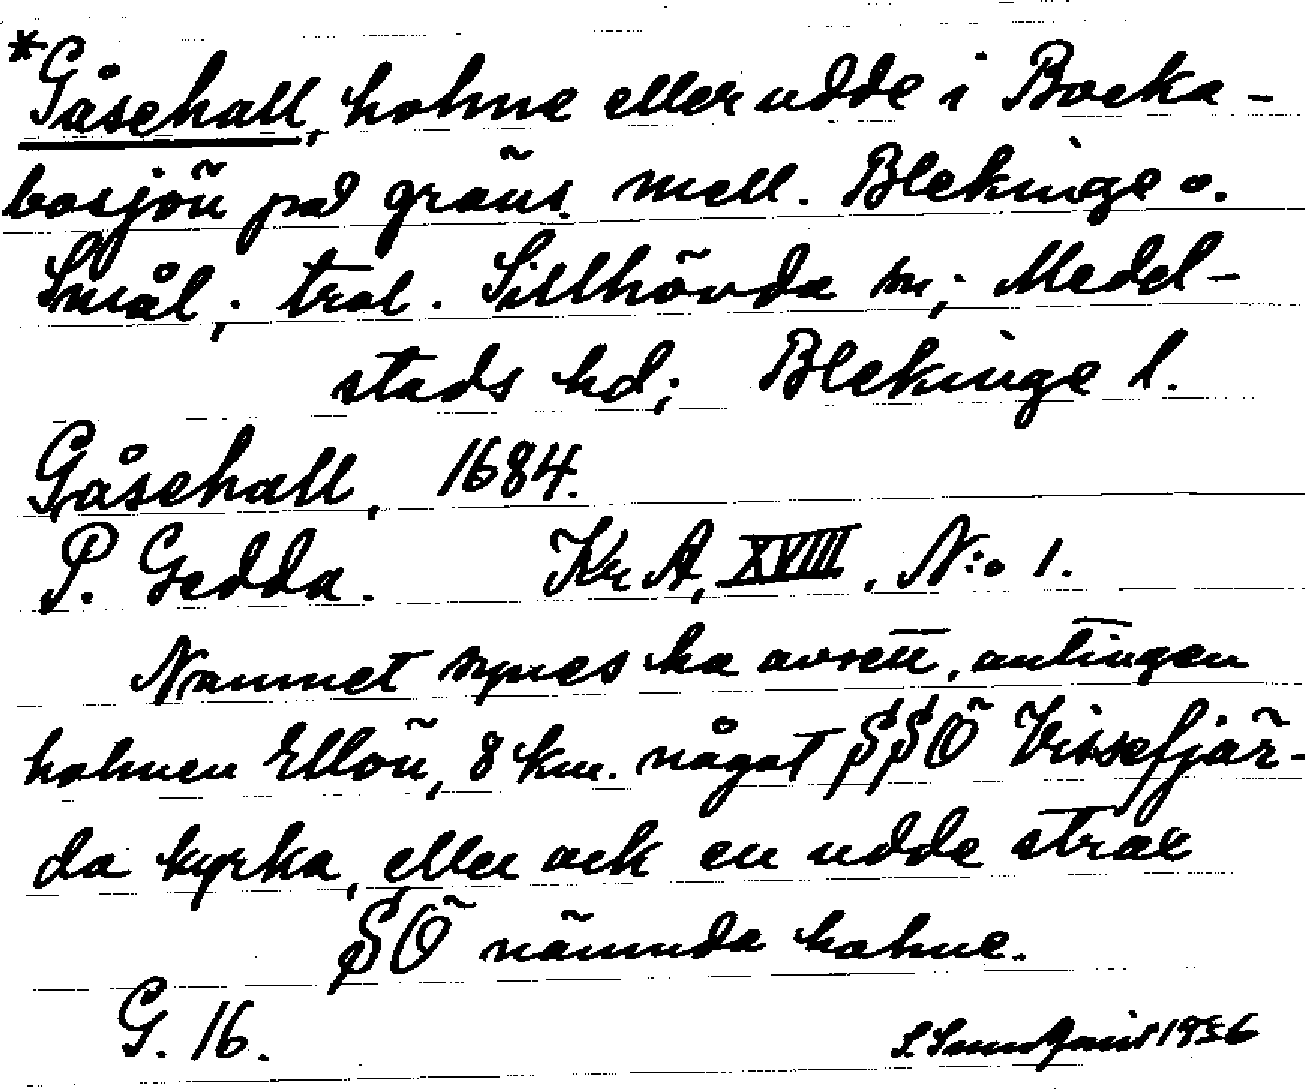 *Gåsehall, holme eller udde i Bocka-
bosjön på gräns. mell. Blekinge o.
Smål.; trol. Sillhövda sn; Medel-
stads hd; Blekinge l.
Gåsehall, 1684.
P. Gedda. Kr A, XVIII, N:o 1.
Namnet synes ha avsett, antingen
holmen Ellön, 8 km. något SSÖ Vissefjär-
da kyrka, eller ock en udde strax
SÖ nämnda holme.
G. 16. 1956